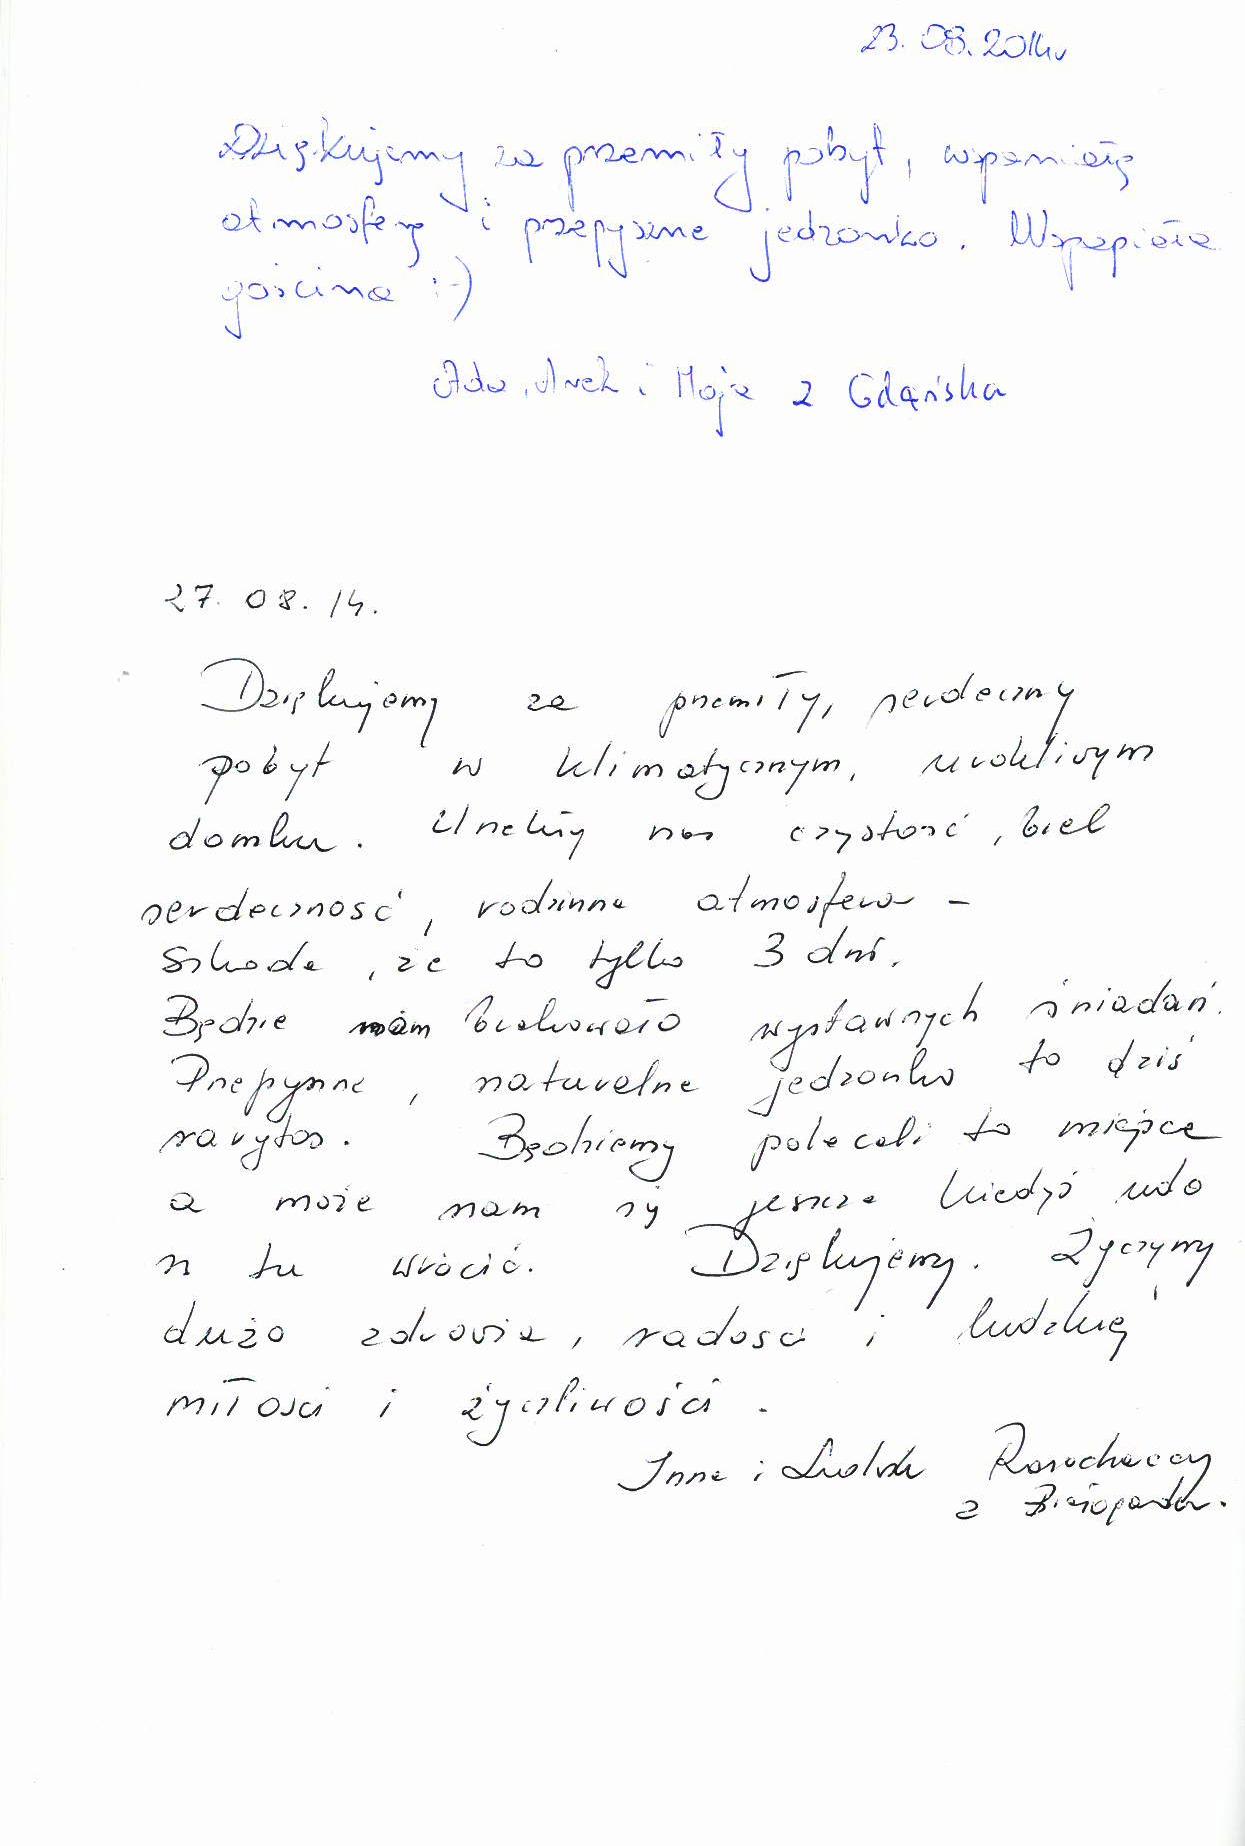 23.08.2014r
Dziękujemy za przemiły pobyt, wspaniałą
atmosferę i przepyszne jedzonko. Wspaniała
gościna :-)
Ada, Arek i Maja z Gdańska
27. 08. 14.
Dziękujemy za przemiły, serdeczny
pobyt w klimatycznym, urokliwym
domku. Urzekły nas czystość, biel
serdeczność, rodzinna atmosfera -
Szkoda, że to tylko 3 dni.
Będzie nam brakowało wystawnych śniadań.
Przepyszne, naturalne jedzonko to dziś
rarytas. Będziemy polecali to miejsce
a może nam się jeszcze kiedyś uda
tu wrócić. Dziękujemy. Życzymy
dużo zdrowia, radości i ludzkiej
miłości i życzliwości.
i
z Białogardu.